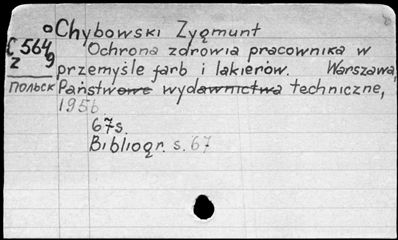 Chybowski Zygmunt
С 564
2 9
Ochrona zdrowia pracownika w
przemyśle farb i lakierów. Warszawa,
польск
Państwowe wydawnictwa techniczne,
1956
67s.
Bibliogr. s. 67